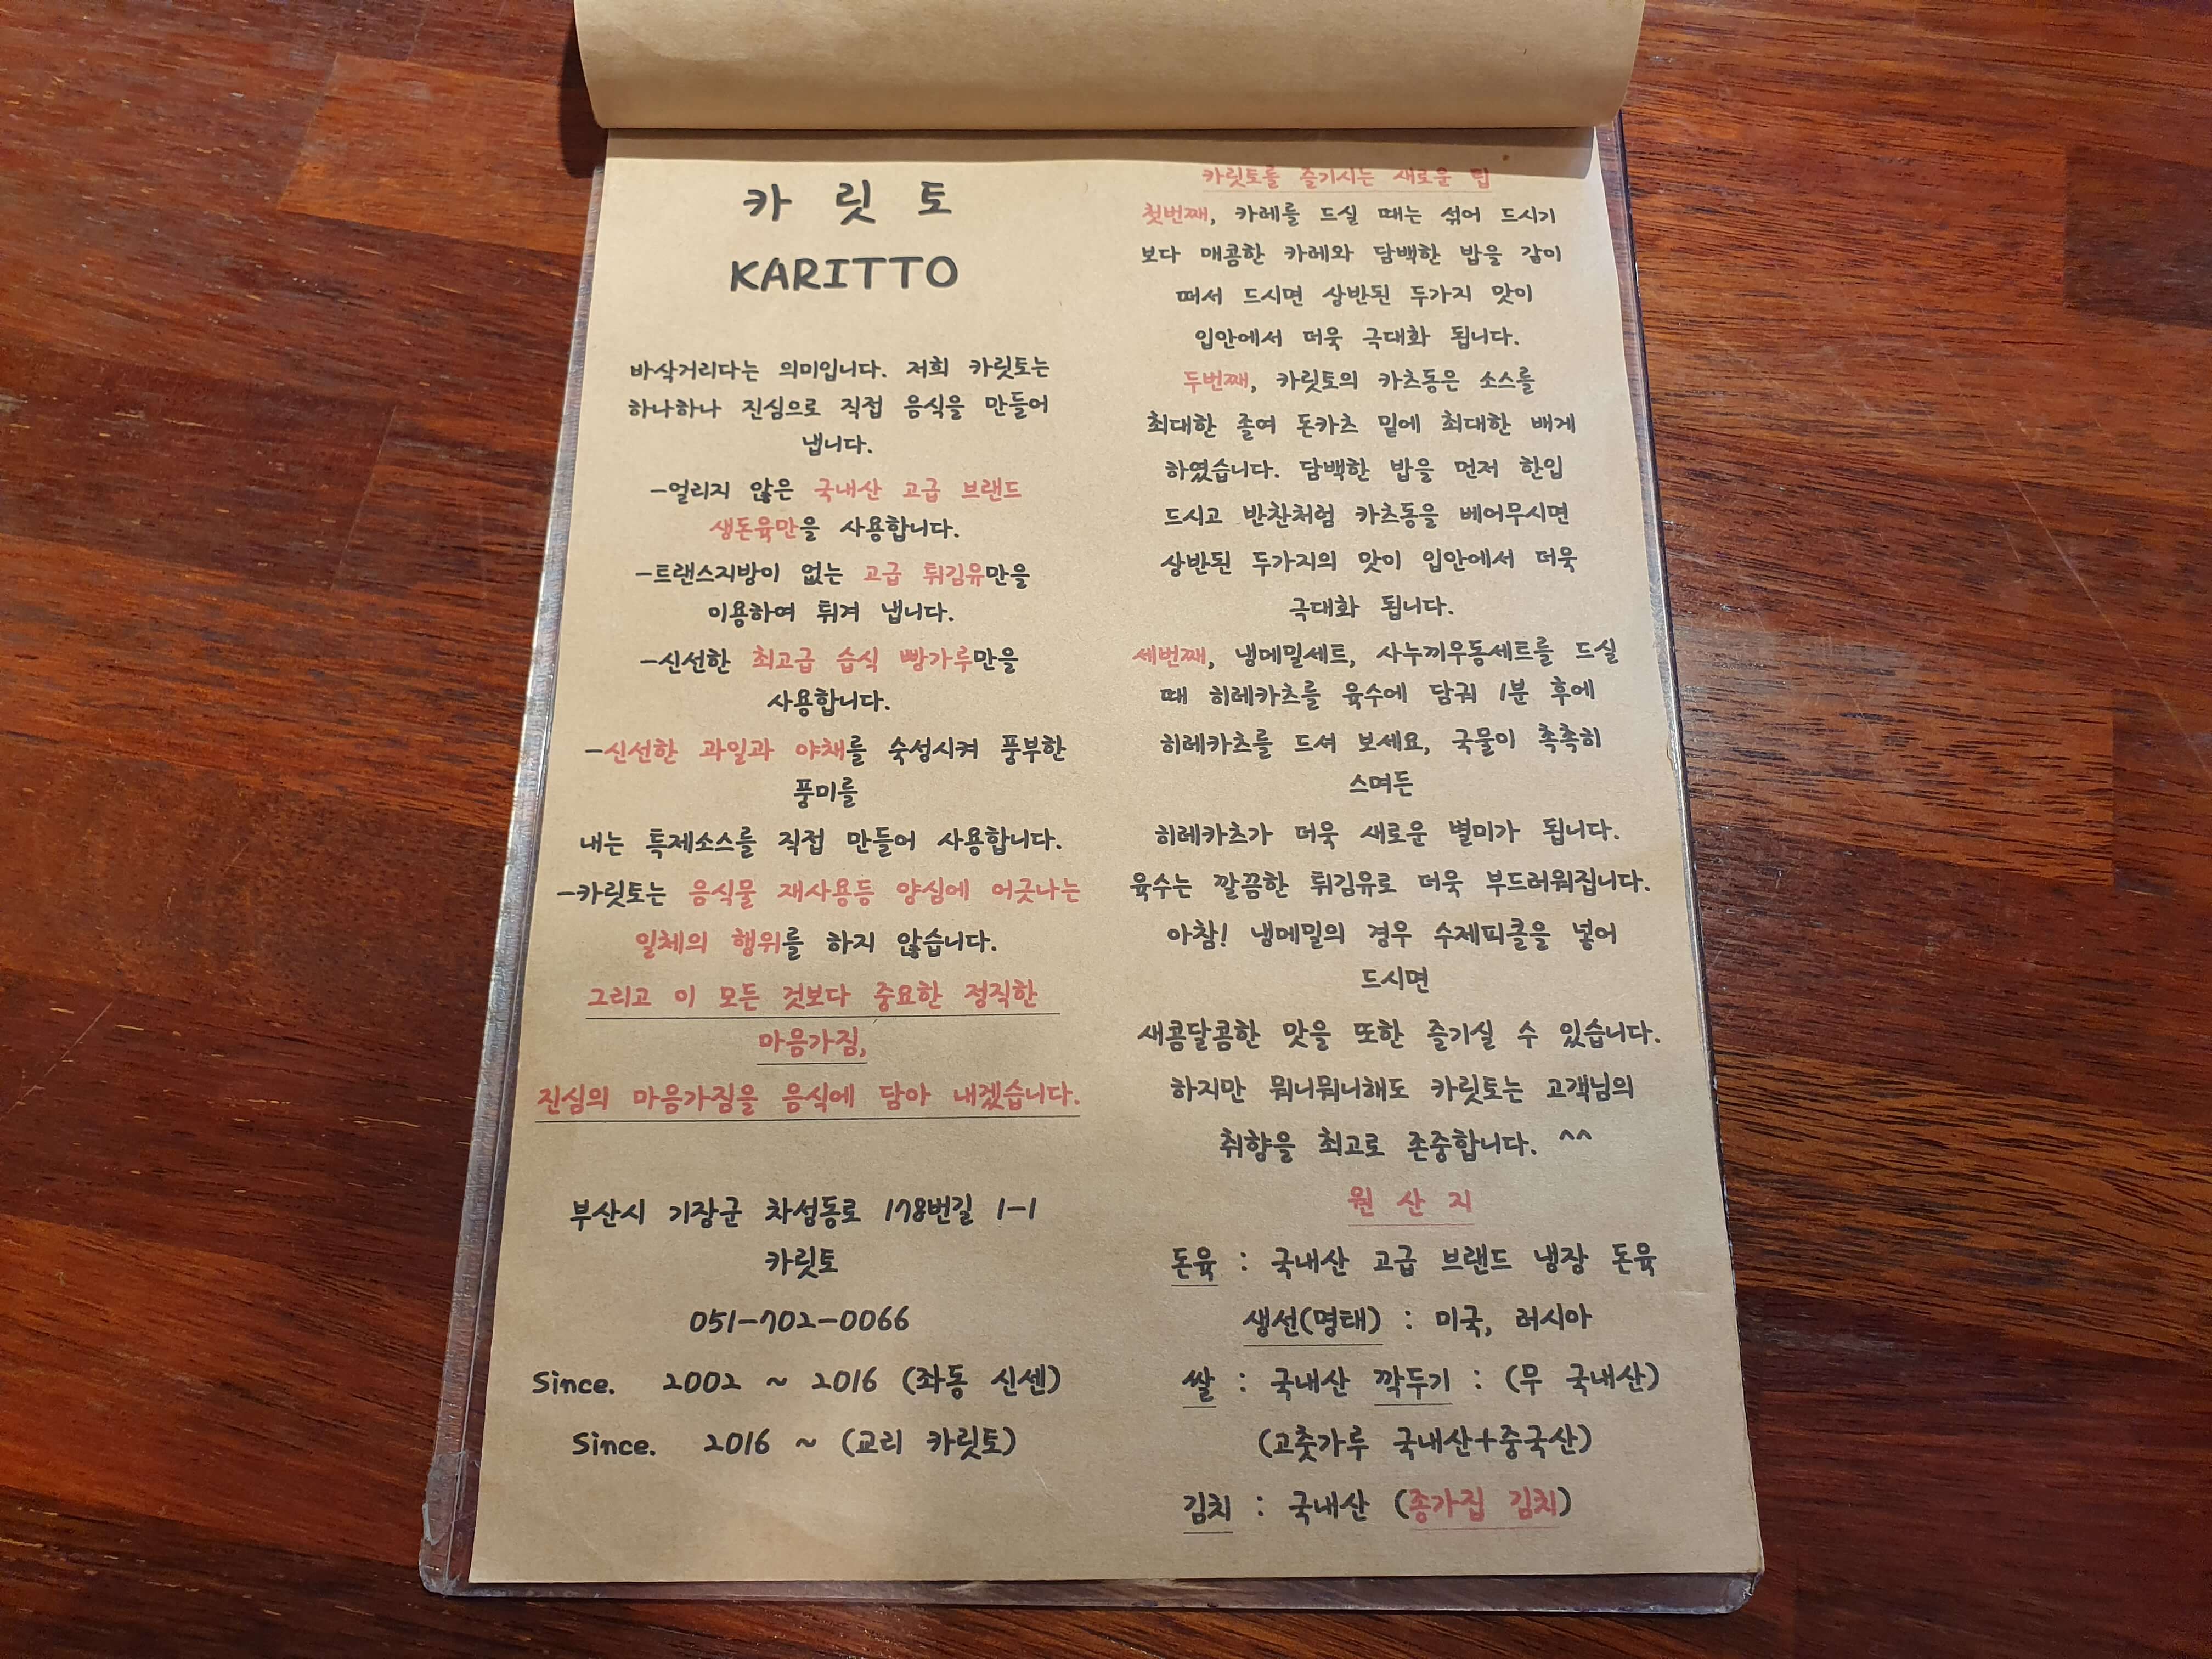 카 릿 토
KARITTO
바삭거리다는 의미입니다. 저희 카릿토는
하나하나 진심으로 직접 음식을 만들어
냅니다.
-얼리지 않은 국내산 고급 브랜드
생돈육만을 사용합니다.
-트랜스지방이 없는 고급 튀김유만을
이용하여 튀겨 냅니다.
-신선한 최고급 습식 빵가루만을
사용합니다.
-신선한 과일과 야채를 숙성시켜 풍부한
풍미를
내는 특제소스를 직접 만들어 사용합니다.
-카릿토는 음식물 재사용등 양심에 어긋나는
일체의 행위를 하지 않습니다.
그리고 이 모든 것보다 중요한 정직한
마음가짐,
진심의 마음가짐을 음식에 담아 내겠습니다.
부산시 기장군 차성동로 178번길 1-1
카릿토
051-702-0066
Since. 2002 ~ 2016 (좌동 신센)
Since. 2016 ~ (교리 카릿토)
카릿토를 즐기시는 새로운 팁
첫번째, 카레를 드실 때는 섞어 드시기
보다 매콤한 카레와 담백한 밥을 같이
떠서 드시면 상반된 두가지 맛이
입안에서 더욱 극대화 됩니다.
두번째, 카릿토의 카츠동은 소스를
최대한 졸여 돈카츠 밑에 최대한 배게
하였습니다. 담백한 밥을 먼저 한입
드시고 반찬처럼 카츠동을 베어무시면
상반된 두가지의 맛이 입안에서 더욱
극대화 됩니다.
세번째, 냉메밀세트, 사누끼우동세트를 드실
때 히레카츠를 육수에 담궈 1분 후에
히레카츠를 드셔 보세요, 국물이 촉촉히
스며든
히레카츠가 더욱 새로운 별미가 됩니다.
육수는 깔끔한 튀김유로 더욱 부드러워집니다.
아참! 냉메밀의 경우 수제피클을 넣어
드시면
새콤달콤한 맛을 또한 즐기실 수 있습니다.
하지만 뭐니뭐니해도 카릿토는 고객님의
취향을 최고로 존중합니다. ^^
원 산 지
돈육 : 국내산 고급 브랜드 냉장 돈육
생선(명태) : 미국, 러시아
쌀 : 국내산 깍두기 : (무 국내산)
(고춧가루 국내산+중국산)
김치 : 국내산 (종가집 김치)